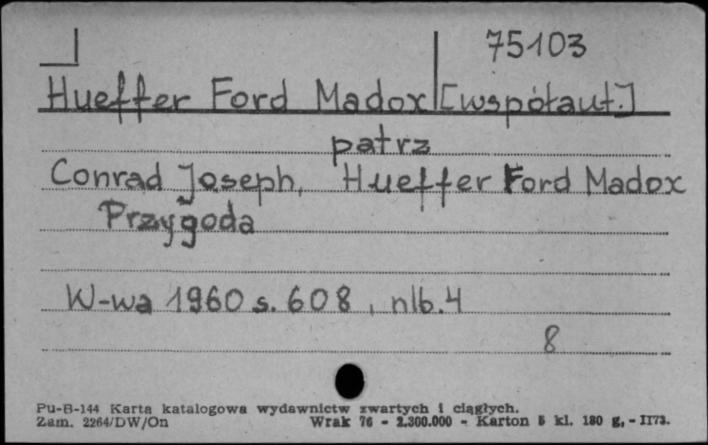 75103
Hueffer Ford Madox [współaut.]
patrz
Conrad Joseph, Hueffer Ford Madox
Przygoda
W-wa 1960 s. 608, nlb. 4
8
Pu-B-144 Karta katalogowa wydawnictw zwartych i ciągłych.
Zam. 2264/DW/On Wrak 76 - 2.300.000 - Karton 5 kl. 180 g, - II73.